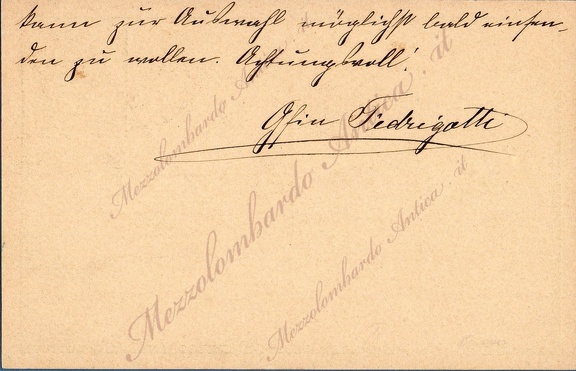 kann zur Auswahl möglichst bald einsen-
den zu wollen. Achtungsvoll!
Gfin Fedrigotti
Mezzolombardo Antica . it
Mezzolombardo Antica . it
Mezzolombardo Antica . it